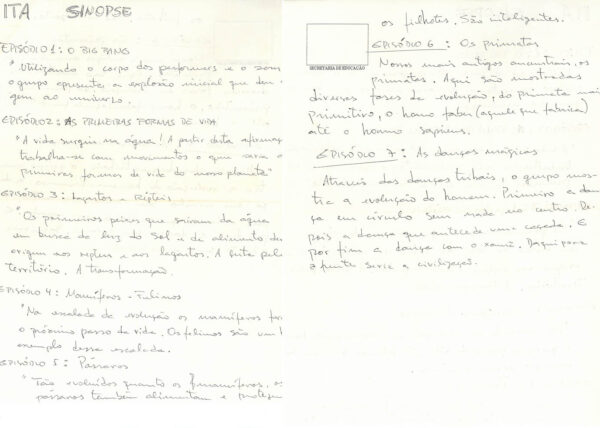 ITA SINOPSE
EPISÓDIO 1: O BIG BANG
"Utilizando o corpo dos performers e o som
o grupo apresenta a explosão inicial que deu
gem ao universo.
EPISÓDIO 2: AS PRIMEIRAS FORMAS DE VIDA
"A vida surgiu na água! A partir desta afirmaç
trabalha-se com movimentos o que seria a
primeiras formas de vida do nosso planeta"
EPISÓDIO 3: Lagartos e Répteis
"Os primeiros peixes que saíram da água
em busca da luz do sol e de alimento de
origem aos répteis e aos lagartos. A luta pelo
território. A transformação.
EPISÓDIO 4: Mamíferos - Felinos
"Na escalada da evolução os mamíferos for
o próximo passo da vida. Os felinos são um b
exemplo dessa escalada.
EPISÓDIO 5: Pássaros
"Tão evoluídos quanto os mamíferos, os
pássaros também alimentam e protegem
os filhotes. São inteligentes.
SECRETARIA DE EDUCAÇÃO
EPISÓDIO 6: Os primatas
Nossos mais antigos ancestrais, os
primatas. Aqui são mostradas
diversas fases da evolução, do primata mais
primitivo, o homo faber (aquele que fabrica)
até o homo sapiens.
EPISÓDIO 7: As danças mágicas
Através das danças tribais, o grupo mos-
tra a evolução do homem. Primeiro a dan-
ça em círculo sem nada no centro. De-
pois a dança que antecede uma caçada. E
por fim a dança com o xamã. Daqui para
a frente seria a civilização.